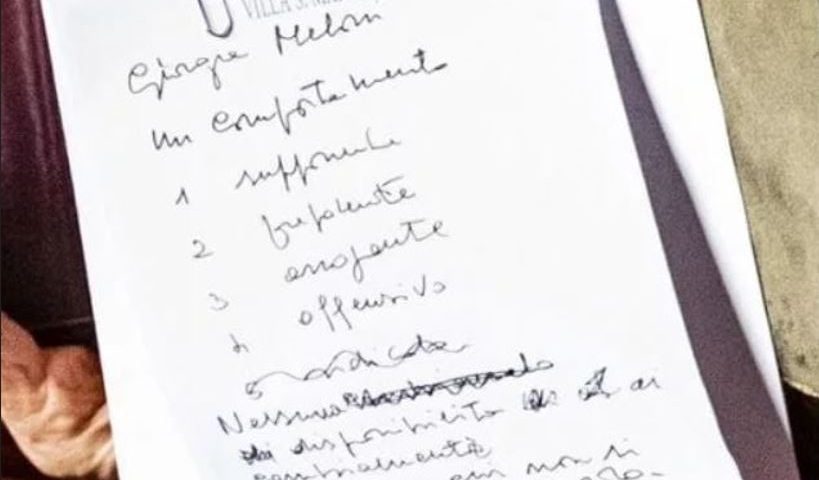 VILLA S. MA
Giorgia Meloni
un comportamento
1 supponente
2 prepotente
3 arrogante
4 offensivo
5 ridicola
Nessuna
disponibilità ai
cambiamenti
non si